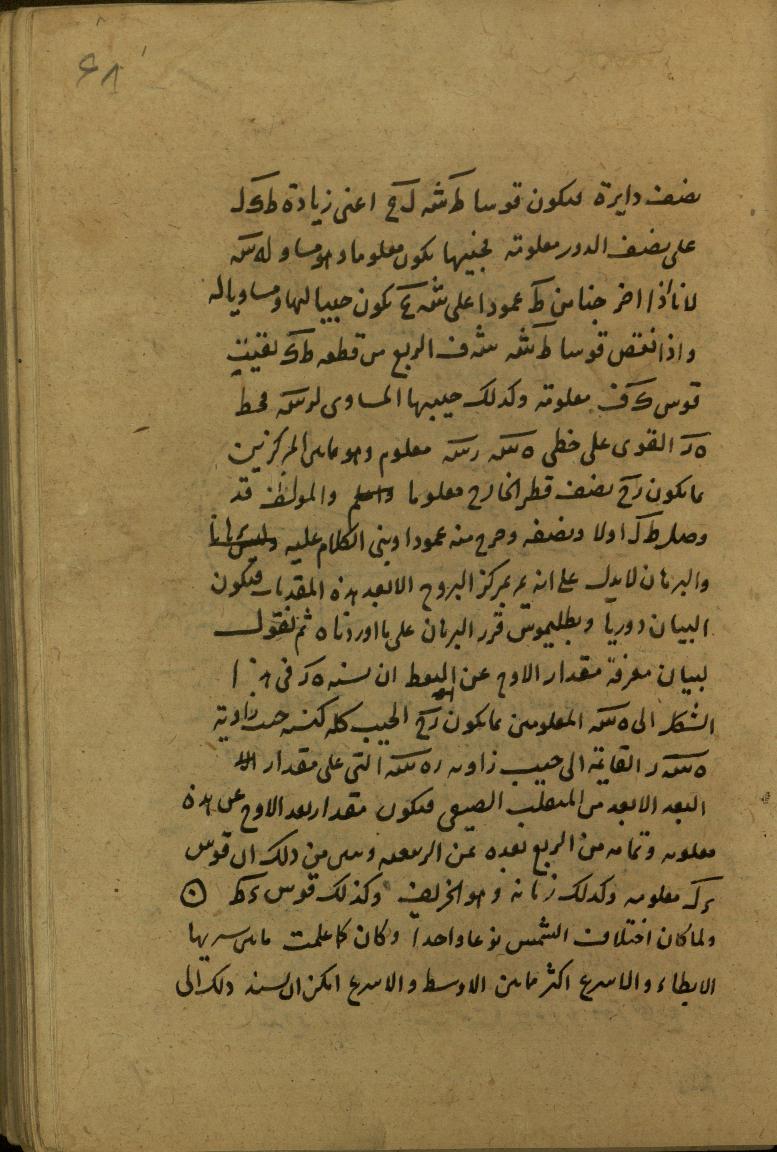 ٤٨
نصف دايرة فيكون قوسا ط شه ل ع اعنى زيادة ط ك ل
على نصف الدور معلومة فجيبها يكون معلوما وهو مساو له سه
لانا اذا اخرجنا من ط عمودا على شه ع يكون جيبا لها ومساويا له
واذا نقص قوسا ط شه شه ف الربع من قطعه ط ك بقيت
قوس ك ف معلومة وكذلك جيبها المساوى لر سه فخط
ه ر القوى على خطى ه سه ر سه معلوم وهو مابين المركزين
بما يكون ر ع نصف قطر الخارج معلوما واعلم والمولف قد
وصل ط ل اولا ونصفه وخرج منه عمودا وبنى الكلام عليه
والبرهان لا يدل على انه يمر بمركز البروج الا بعد هذه المقدمات فيكون
البيان دوريا وبطليموس قرر البرهان على ما اوردناه ثم نقول
لبيان معرفة مقدار الاوج عن ان نسبة ه ر فى هذا
الشكل الى ه سه المعلومين بما يكون ر ع الجيب كله كنسبة جيب زاوية
ه سه ر القائمة الى جيب زاوية ر ه سه التى على مقدار
البعد الابعد من المنقلب الصيفى فيكون مقدار بعد الاوج عن هذه
معلومة وتمامه من الربع بعده عن الربيعية وتبين من ذلك ان قوس
معلومه وكذلك زمانه وهو الخريف وكذلك قوس
ولما كان اختلاف الشمس نوعا واحدا وكان كما علمت مابين سيريها
الابطاء والاسرع اكثر مابين الاوسط والاسرع امكن ان نسند ذلك الى